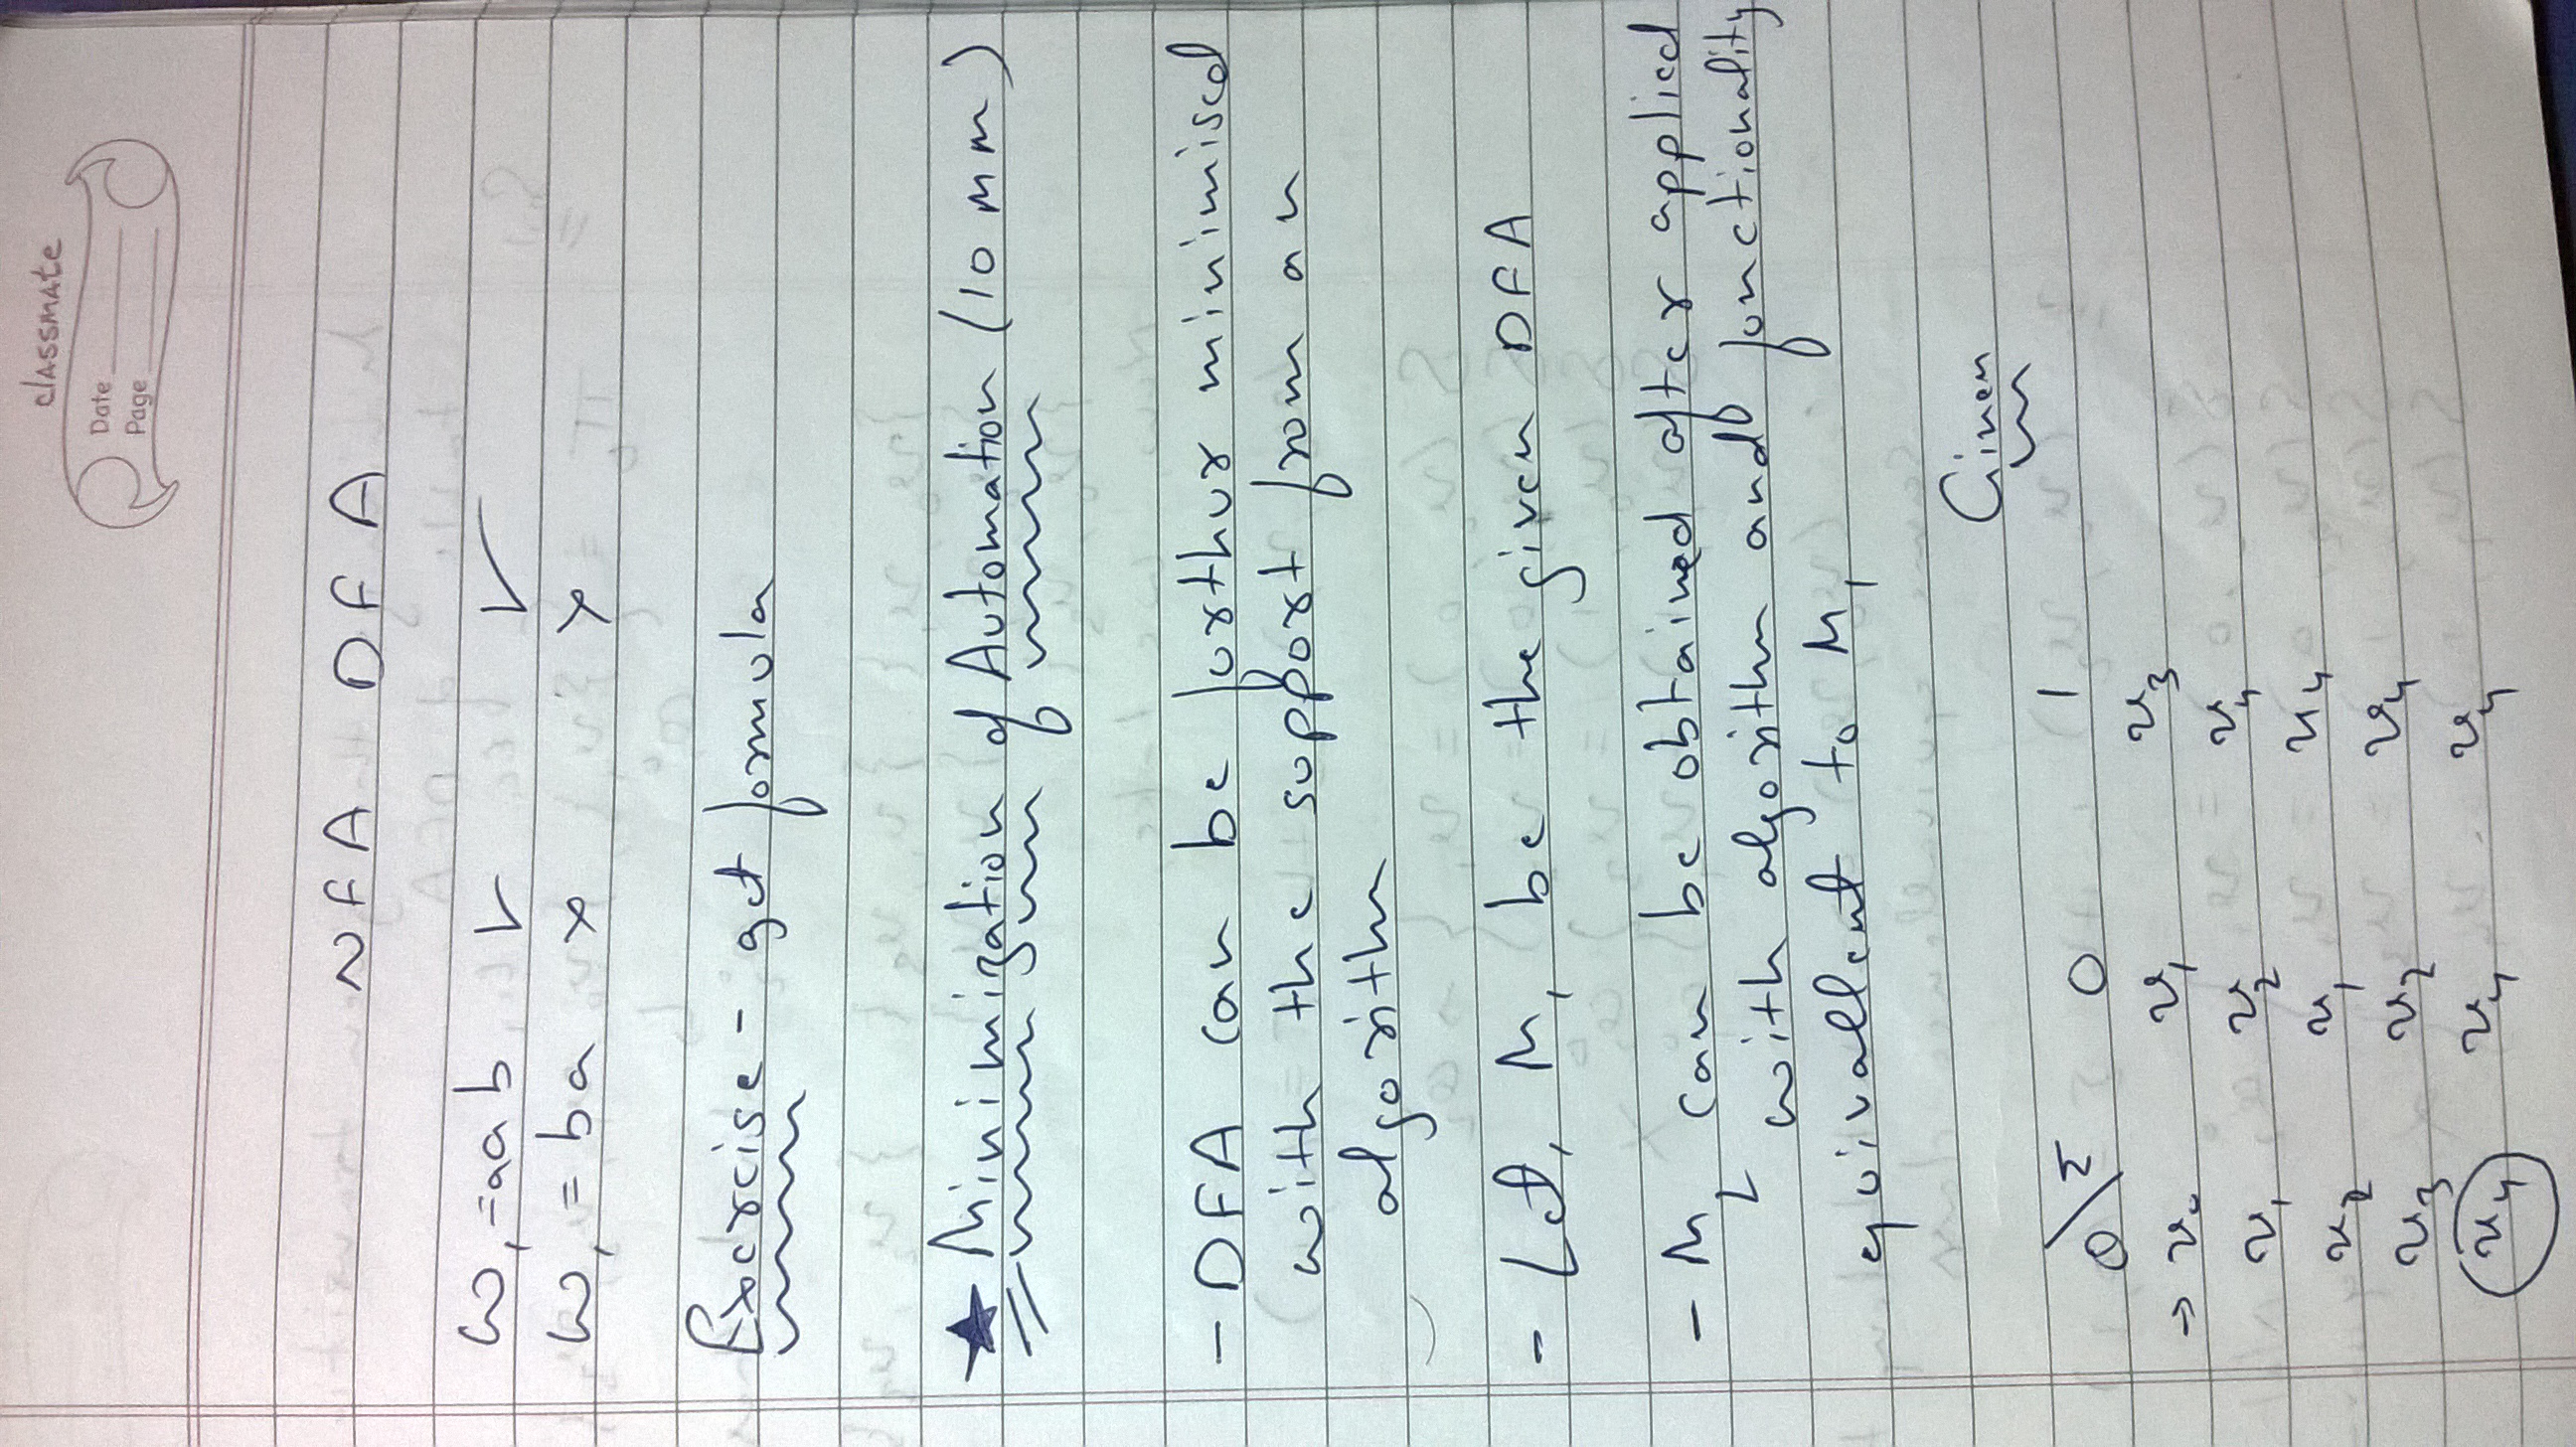 classmate
Date
Page
NFA DFA
ω₁=aab ✓ ✓
ω₁ = ba × ×
Exercise - get formula
★ Minimization of Automation (10 MM)
- DFA can be furthur minimised
with the support from an
algorithm
- Let, M₁ be the given DFA
- M₂ can be obtained after applied
with algorithm and functionality
equivallent to M₁
Given
Q\Σ 0 1
→ v₀ v₁ v₃
v₁ v₂ v₄
v₂ v₁ v₄
v₃ v₂ v₄
v₄ v₄ v₄